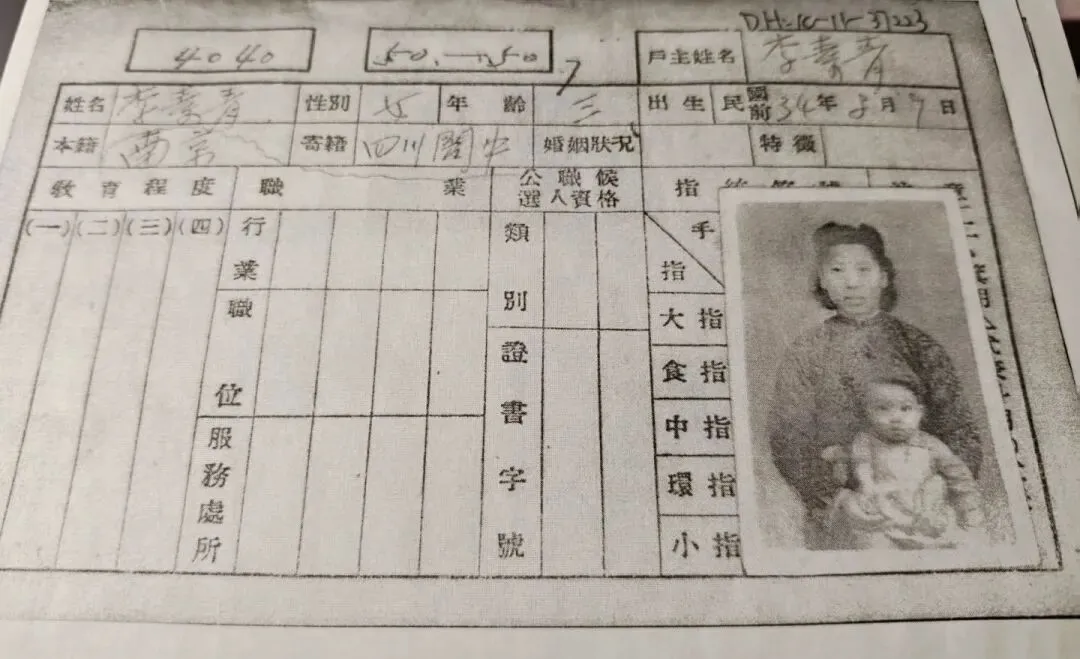 DH:10-11-37223
4040 50.—1150 戶主姓名 李壽青
姓名 李壽青 性別 女 年齡 三 出生 民國前34年 月 日
本籍 南京 寄籍 四川閬中 婚姻狀况 特徵
教育程度 職業 公職候選人資格 指
(一)(二)(三)(四) 行業 類別 手
指
職位 大指
證書字號 食指
服務處所 中指
環指
小指